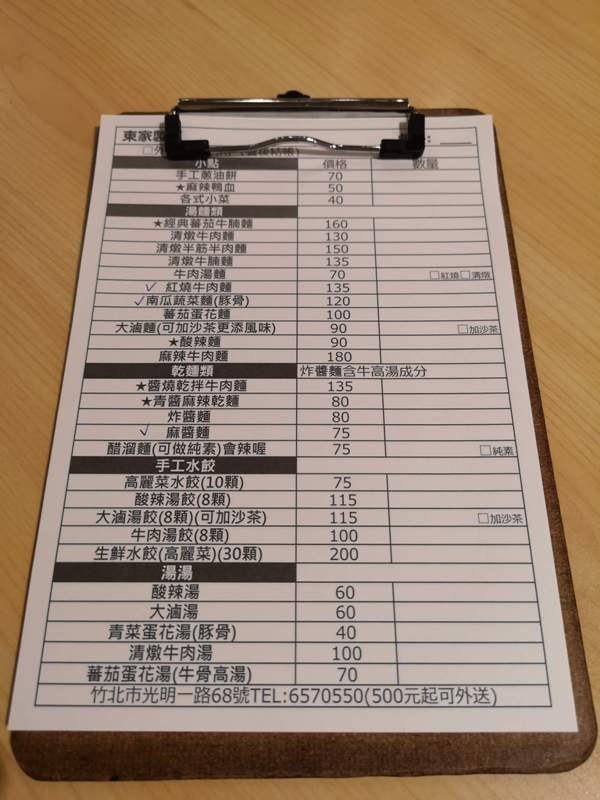 東家
小點 價格 數量
手工蔥油餅 70
★麻辣鴨血 50
各式小菜 40
湯麵類
★經典蕃茄牛腩麵 160
清燉牛肉麵 130
清燉半筋半肉麵 150
清燉牛腩麵 135
牛肉湯麵 70 □紅燒□清燉
✓ 紅燒牛肉麵 135
✓南瓜蔬菜麵(豚骨) 120
蕃茄蛋花麵 100
大滷麵(可加沙茶更添風味) 90 □加沙茶
★酸辣麵 90
麻辣牛肉麵 180
乾麵類 炸醬麵含牛高湯成分
★醬燒乾拌牛肉麵 135
★青醬麻辣乾麵 80
炸醬麵 80
✓ 麻醬麵 75
醋溜麵(可做純素)會辣喔 75 □純素
手工水餃
高麗菜水餃(10顆) 75
酸辣湯餃(8顆) 115
大滷湯餃(8顆)(可加沙茶) 115 □加沙茶
牛肉湯餃(8顆) 100
生鮮水餃(高麗菜)(30顆) 200
湯湯
酸辣湯 60
大滷湯 60
青菜蛋花湯(豚骨) 40
清燉牛肉湯 100
蕃茄蛋花湯(牛骨高湯) 70
竹北市光明一路68號TEL:6570550(500元起可外送)